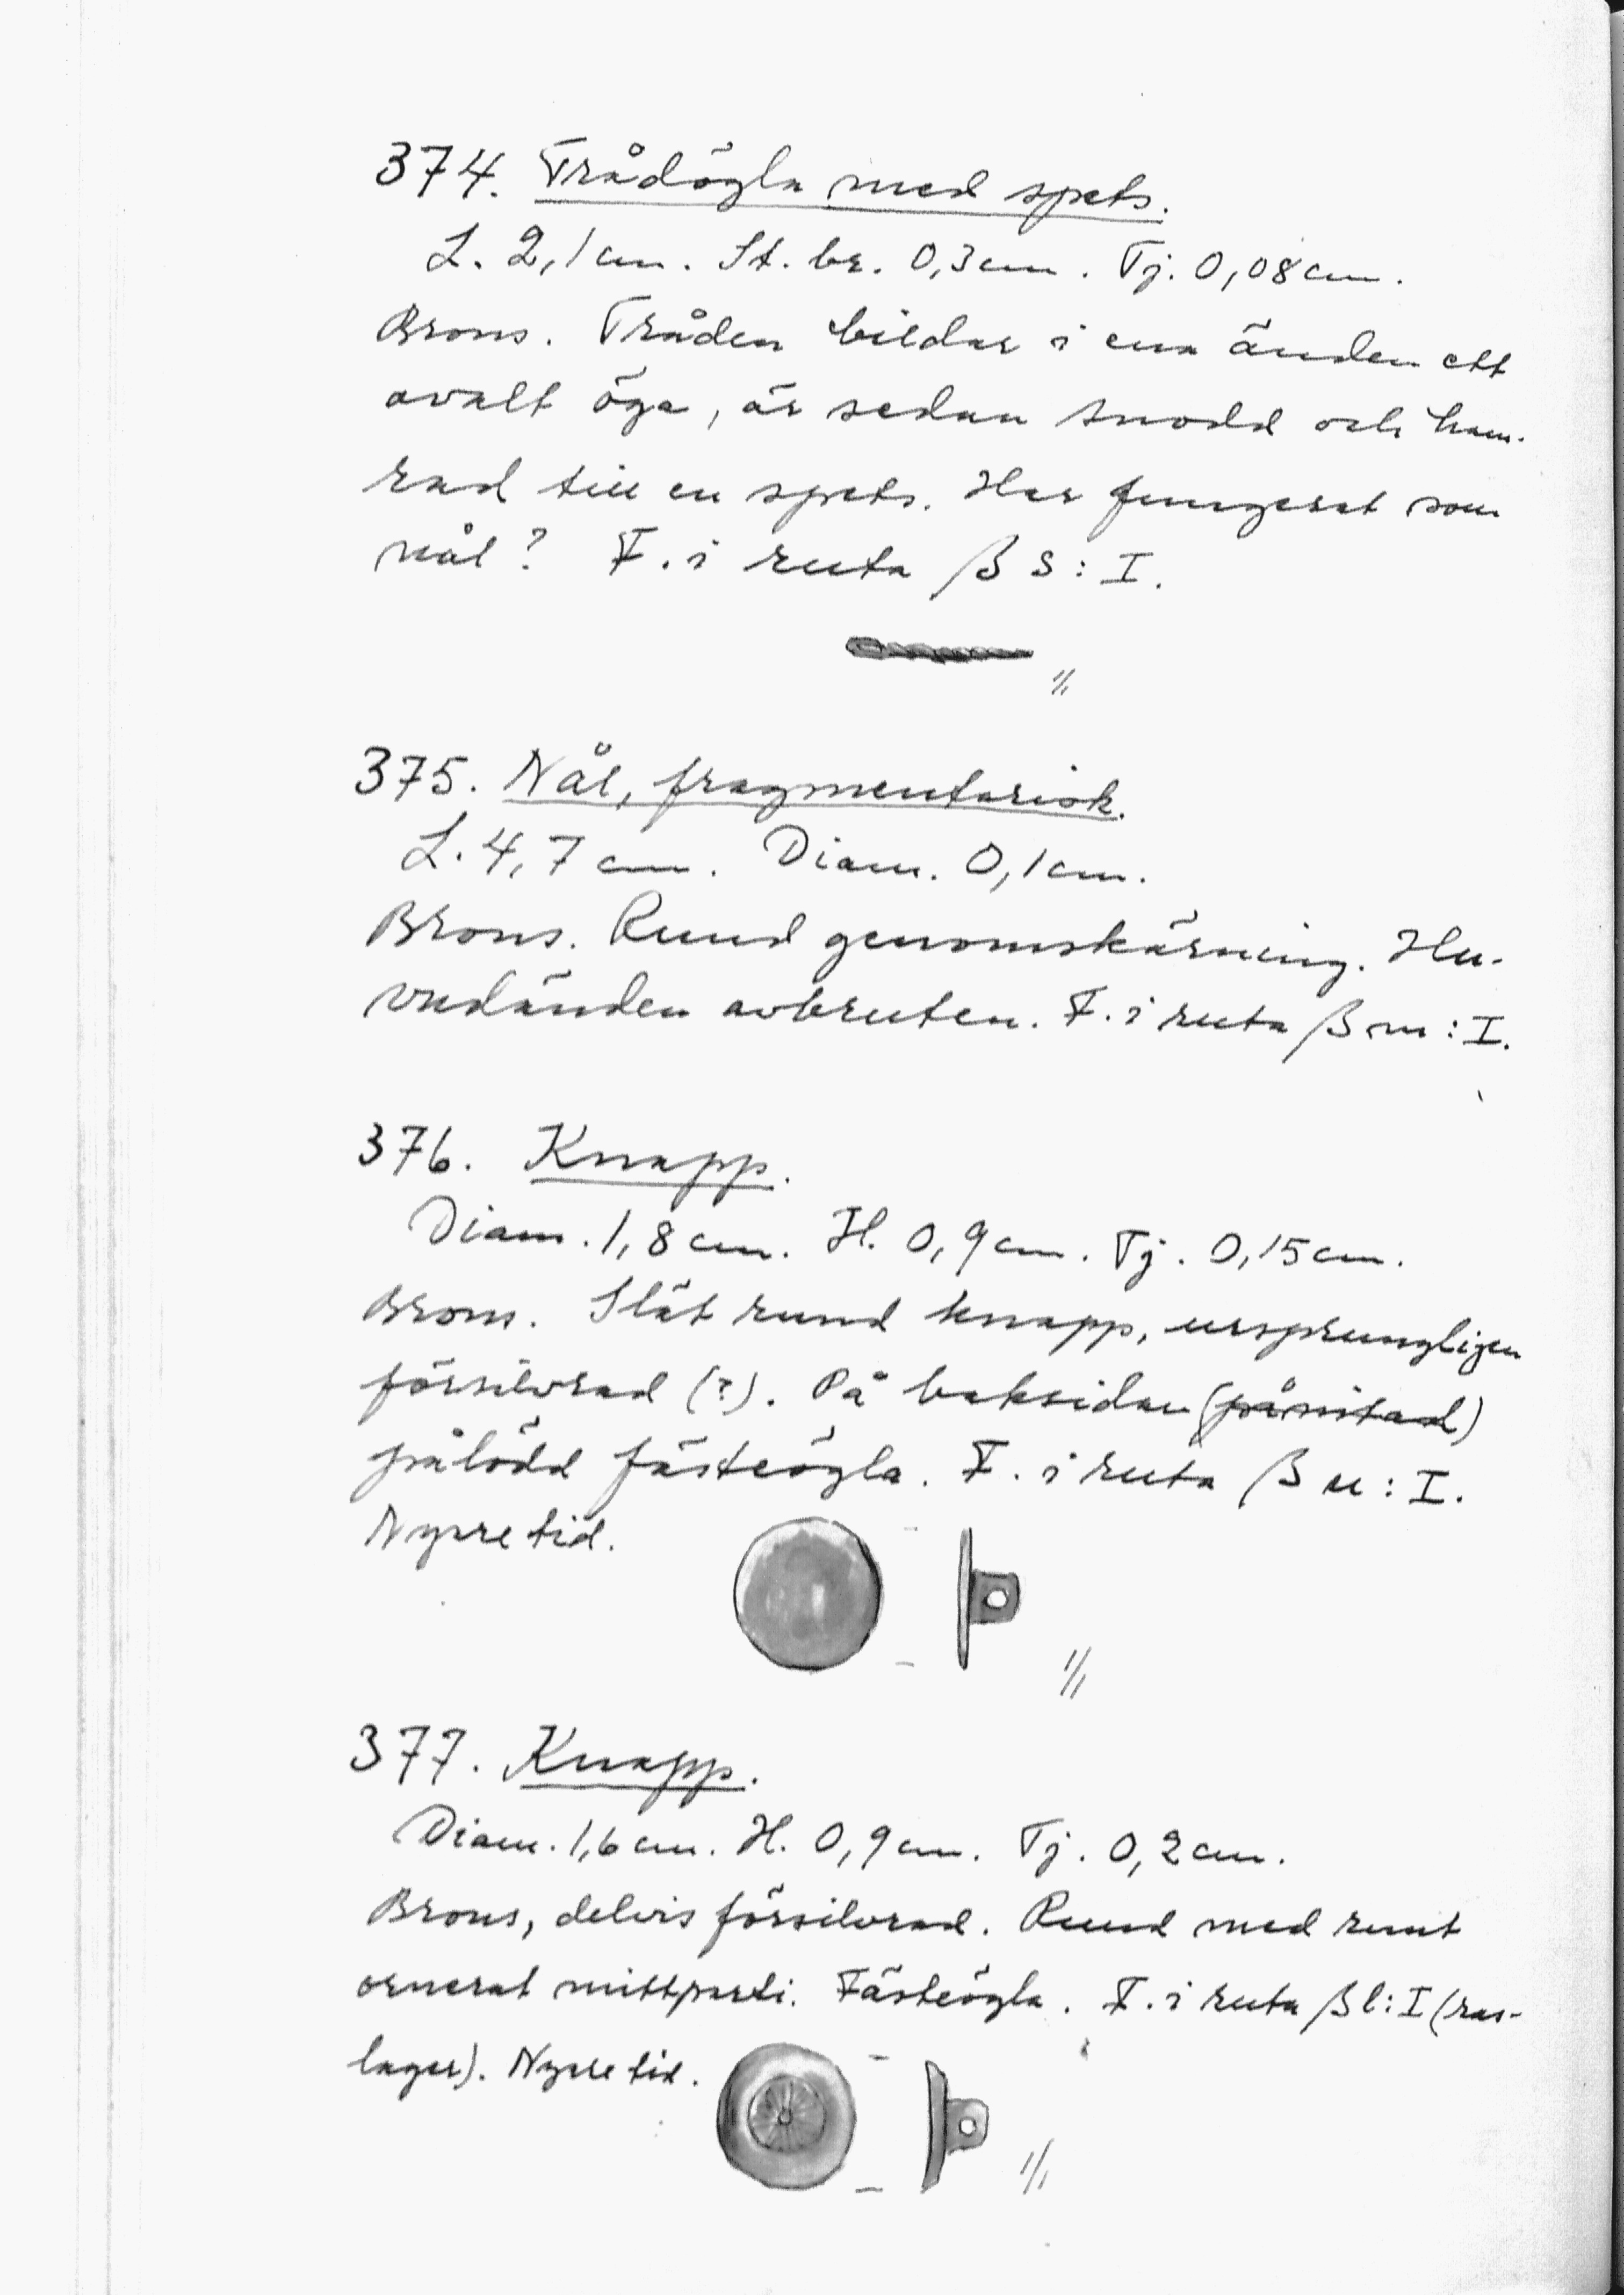 374. Trådögla med spets.
L. 2,1 cm. St. br. 0,3 cm. Tj. 0,08 cm.
Brons. Tråden bildar i ena änden ett
ovalt öga, är sedan snodd och ham-
rad till en spets. Har fungerat som
nål? F. i ruta β s: I.
1/1
375. Nål, fragmentarisk.
L. 4,7 cm. Diam. 0,1 cm.
Brons. Rund genomskärning. Hu-
vudänden avbruten. F. i ruta β m: I.
376. Knapp.
Diam. 1,8 cm. H. 0,9 cm. Tj. 0,15 cm.
Brons. Slät rund knapp, ursprungligen
försilvrad (?). På baksidan (pånitad)
pålödd fästeögla. F. i ruta β u: I.
Nyare tid.
1/1
377. Knapp.
Diam. 1,6 cm. H. 0,9 cm. Tj. 0,2 cm.
Brons, delvis försilvrad. Rund med runt
ornerat mittparti. Fästeögla. F. i ruta β l: I (ras-
lager). Nyare tid.
1/1